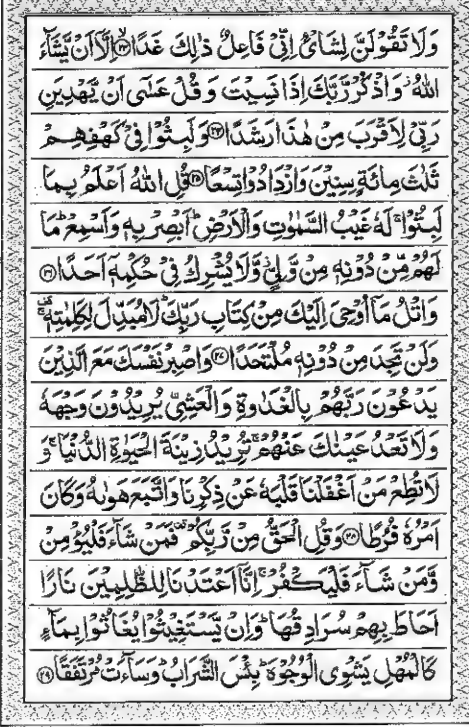 وَلَا تَقُوْلَنَّ لِشَایْءٍ اِنِّیْ فَاعِلٌ ذٰلِكَ غَدًا ۙ﴿۲۳﴾ اِلَّاۤ اَنْ یَّشَآءَ
اللّٰهُ ؗ وَاذْكُرْ رَّبَّكَ اِذَا نَسِیْتَ وَقُلْ عَسٰۤی اَنْ یَّهْدِیَنِ
رَبِّیْ لِاَقْرَبَ مِنْ هٰذَا رَشَدًا ﴿۲۴﴾ وَلَبِثُوْا فِیْ كَهْفِهِمْ
ثَلٰثَ مِائَةٍ سِنِیْنَ وَازْدَادُوْا تِسْعًا ﴿۲۵﴾ قُلِ اللّٰهُ اَعْلَمُ بِمَا
لَبِثُوْا ۚ لَهٗ غَیْبُ السَّمٰوٰتِ وَالْاَرْضِ ؕ اَبْصِرْ بِهٖ وَاَسْمِعْ ؕ مَا
لَهُمْ مِّنْ دُوْنِهٖ مِنْ وَّلِیٍّ ؗ وَّلَا یُشْرِكُ فِیْ حُكْمِهٖۤ اَحَدًا ﴿۲۶﴾
وَاتْلُ مَاۤ اُوْحِیَ اِلَیْكَ مِنْ كِتَابِ رَبِّكَ ؕ لَا مُبَدِّلَ لِكَلِمٰتِهٖ ۚ۫
وَلَنْ تَجِدَ مِنْ دُوْنِهٖ مُلْتَحَدًا ﴿۲۷﴾ وَاصْبِرْ نَفْسَكَ مَعَ الَّذِیْنَ
یَدْعُوْنَ رَبَّهُمْ بِالْغَدٰوةِ وَالْعَشِیِّ یُرِیْدُوْنَ وَجْهَهٗ
وَلَا تَعْدُ عَیْنٰكَ عَنْهُمْ ۚ تُرِیْدُ زِیْنَةَ الْحَیٰوةِ الدُّنْیَا ۚ وَ
لَا تُطِعْ مَنْ اَغْفَلْنَا قَلْبَهٗ عَنْ ذِكْرِنَا وَاتَّبَعَ هَوٰىهُ وَكَانَ
اَمْرُهٗ فُرُطًا ﴿۲۸﴾ وَقُلِ الْحَقُّ مِنْ رَّبِّكُمْ ۫ فَمَنْ شَآءَ فَلْیُؤْمِنْ
وَّمَنْ شَآءَ فَلْیَكْفُرْ ۙ اِنَّاۤ اَعْتَدْنَا لِلظّٰلِمِیْنَ نَارًا
اَحَاطَ بِهِمْ سُرَادِقُهَا ؕ وَاِنْ یَّسْتَغِیْثُوْا یُغَاثُوْا بِمَآءٍ
كَالْمُهْلِ یَشْوِی الْوُجُوْهَ ؕ بِئْسَ الشَّرَابُ ؕ وَسَآءَتْ مُرْتَفَقًا ﴿۲۹﴾